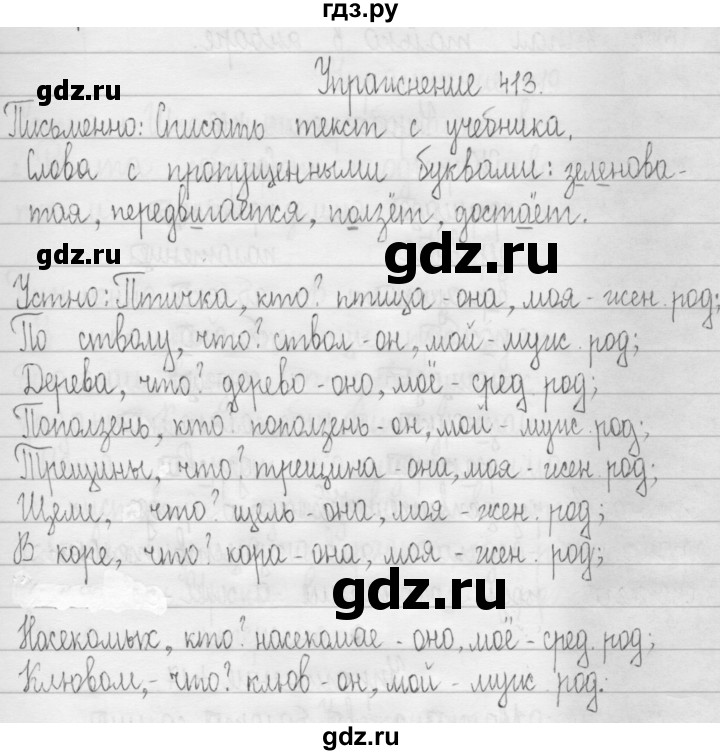 гдз.ру
gdz.ru
gdz.ru
Упражнение 413.
Письменно: Списать текст с учебника.
Слова с пропущенными буквами: зеленова-
тая, передвигается, ползёт, достаёт.
gdz.ru
gdz.ru
Устно: Птичка, кто? птица - она, моя - жен. род;
По стволу, что? ствол - он, мой - муж. род;
Дерева, что? дерево - оно, моё - сред. род;
gdz.ru
gdz.ru
Поползень, кто? поползень - он, мой - муж. род;
Трещины, что? трещина - она, моя - жен. род;
Щели, что? щель она, моя - жен. род;
В коре, что? кора - она, моя - жен. род;
gdz.ru
gdz.ru
Насекомых, кто? насекомое - оно, моё - сред. род;
Клювом, - что? клюв - он, мой - муж. род.
gdz.ru